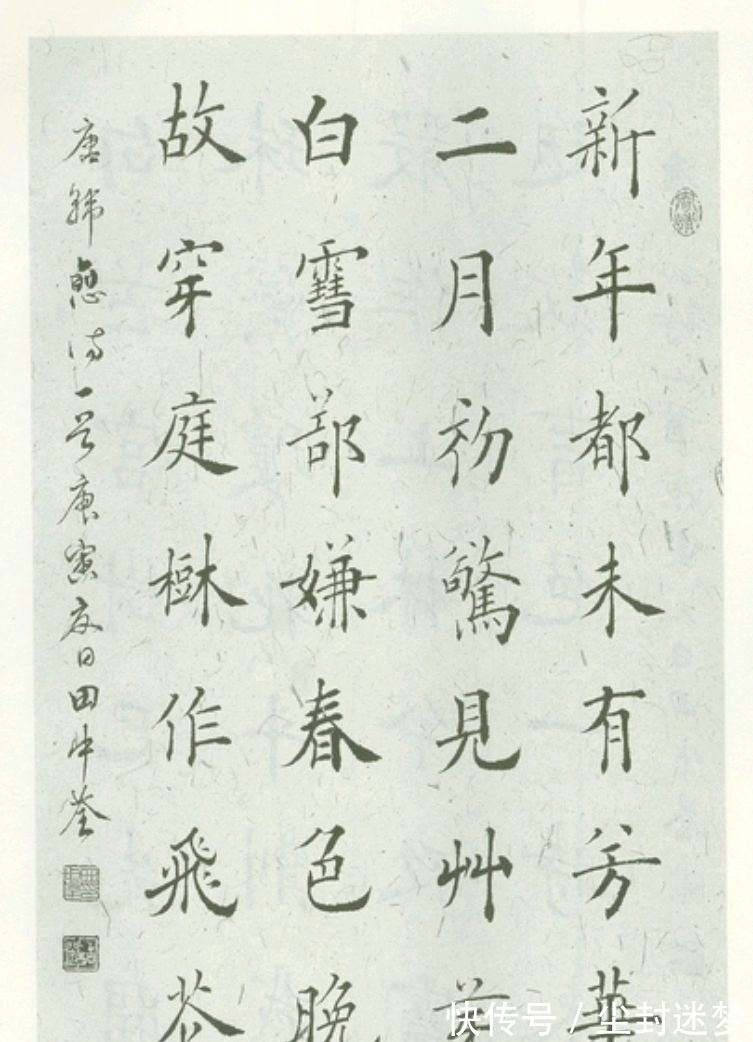 新年都未有芳華
二月初驚見艸芽
白雪郤嫌春色晚
故穿庭樹作飛花
唐韓愈詩一首庚寅夏日田中
快传号 / 尘封迷梦